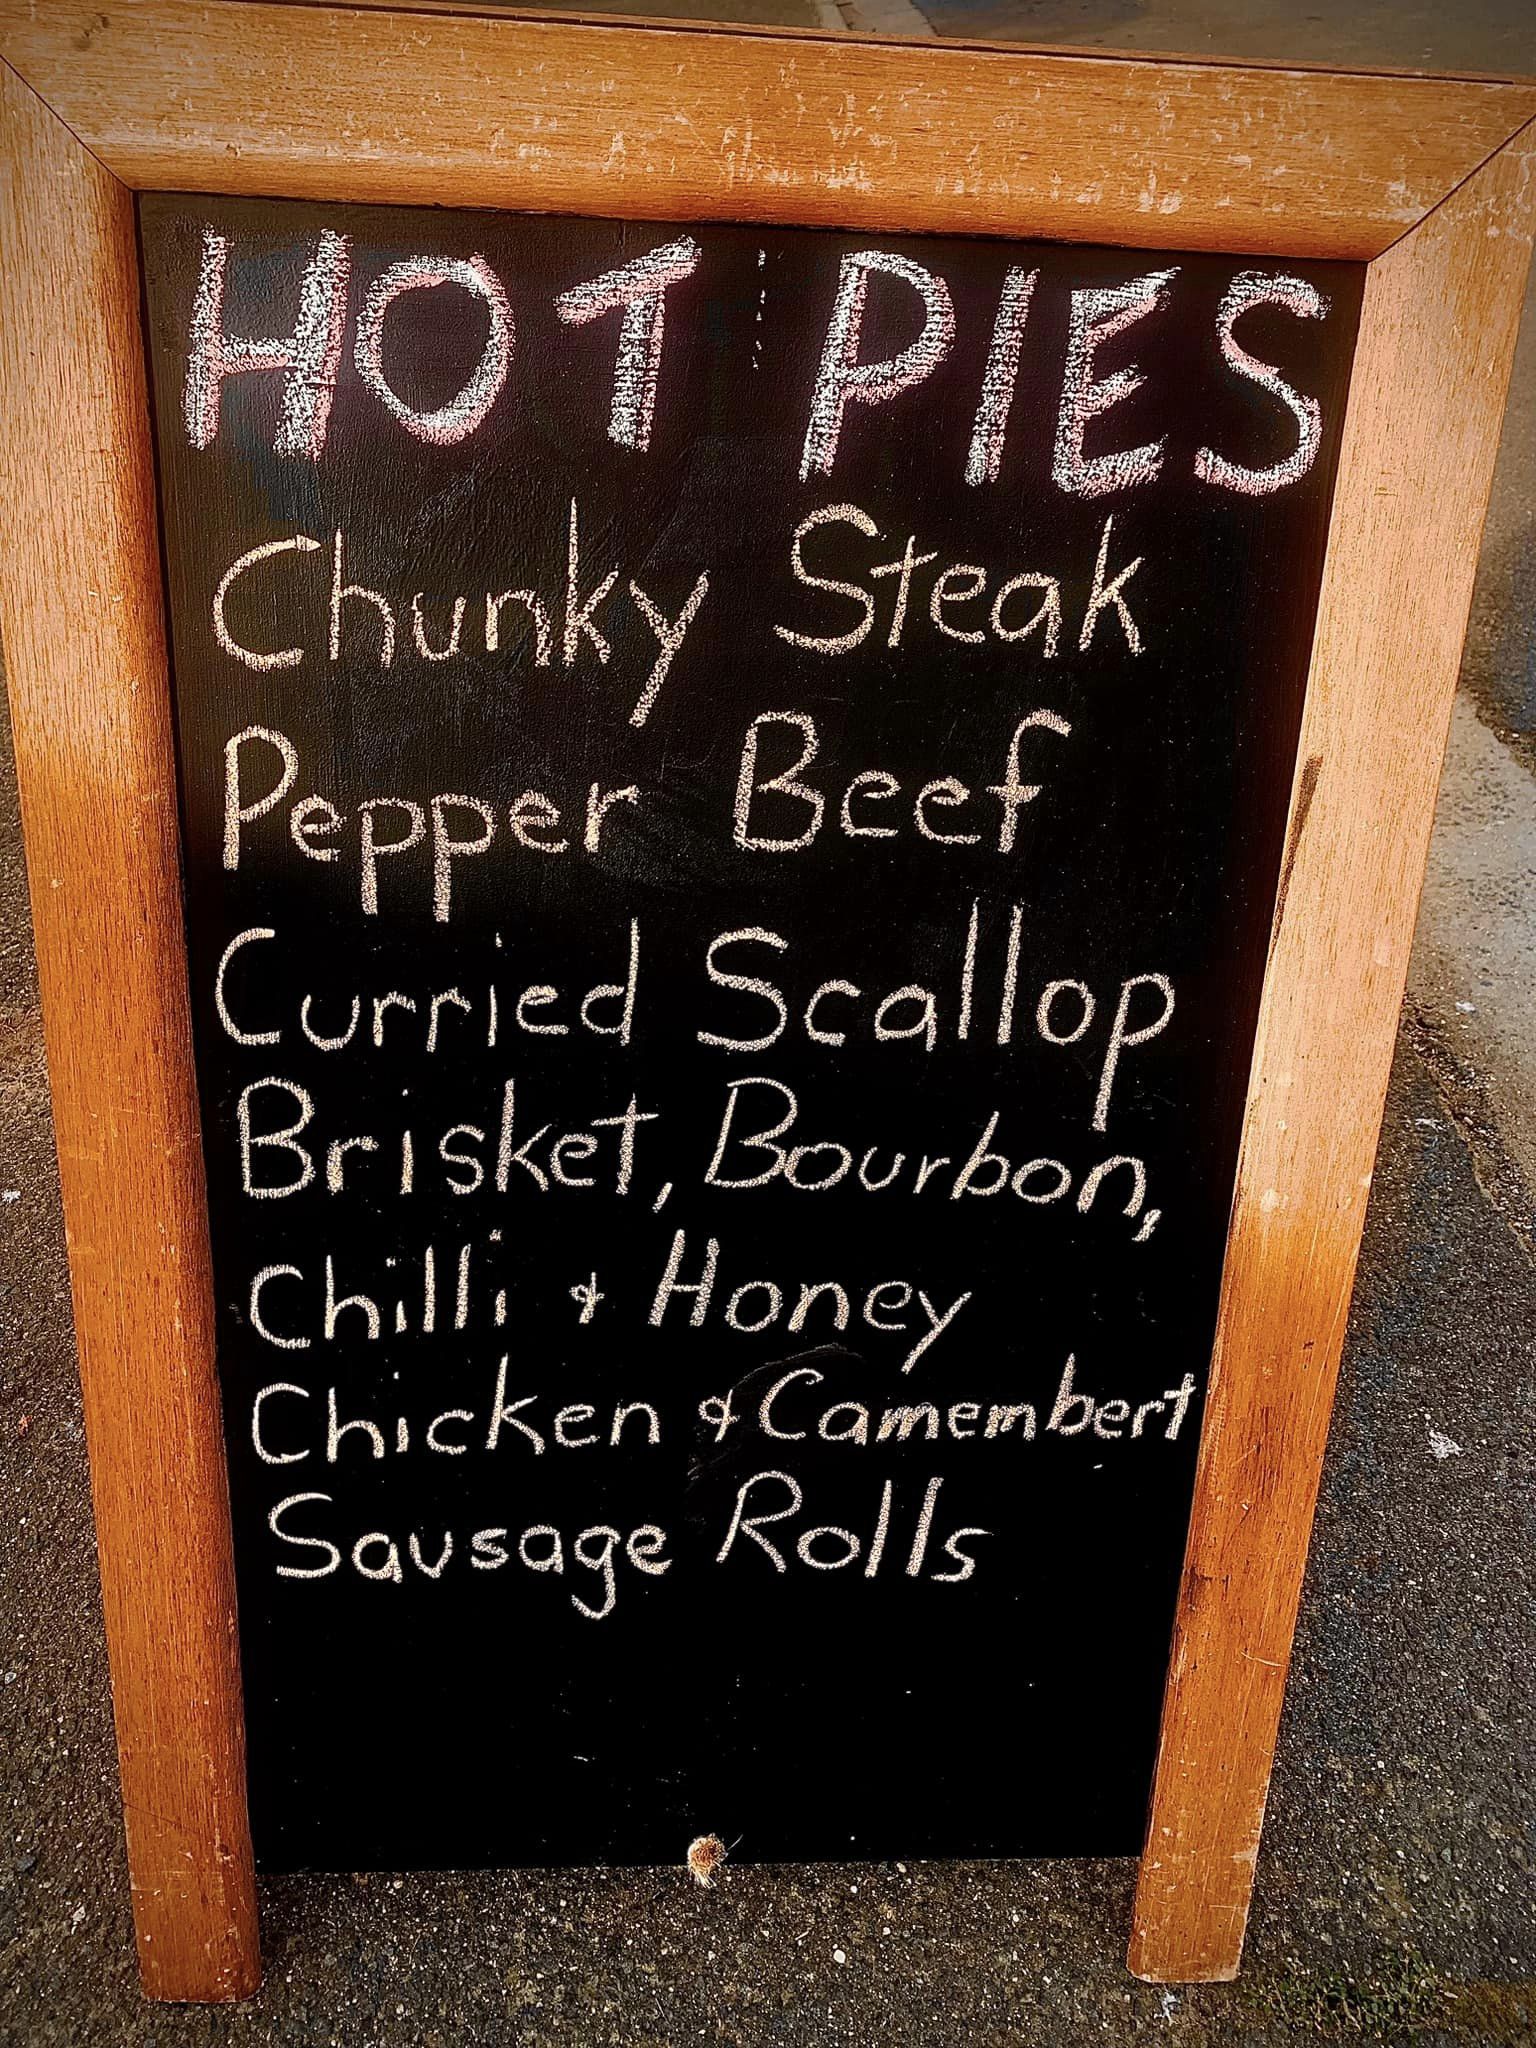 HOT PIES
Chunky Steak
Pepper Beef
Curried Scallop
Brisket, Bourbon,
Chilli & Honey
Chicken & Camembert
Sausage Rolls